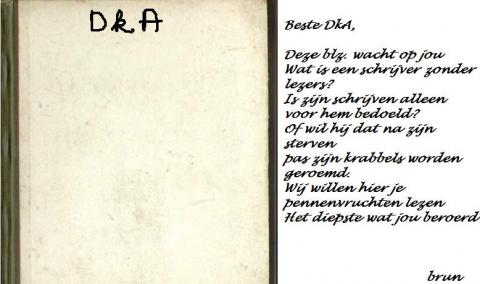 DkA
Beste DkA,
Deze blz. wacht op jou
Wat is een schrijver zonder
lezers?
Is zijn schrijven alleen
voor hem bedoeld?
Of wil hij dat na zijn
sterven
pas zijn krabbels worden
geroemd.
Wij willen hier je
pennenvruchten lezen
Het diepste wat jou beroerd
brun